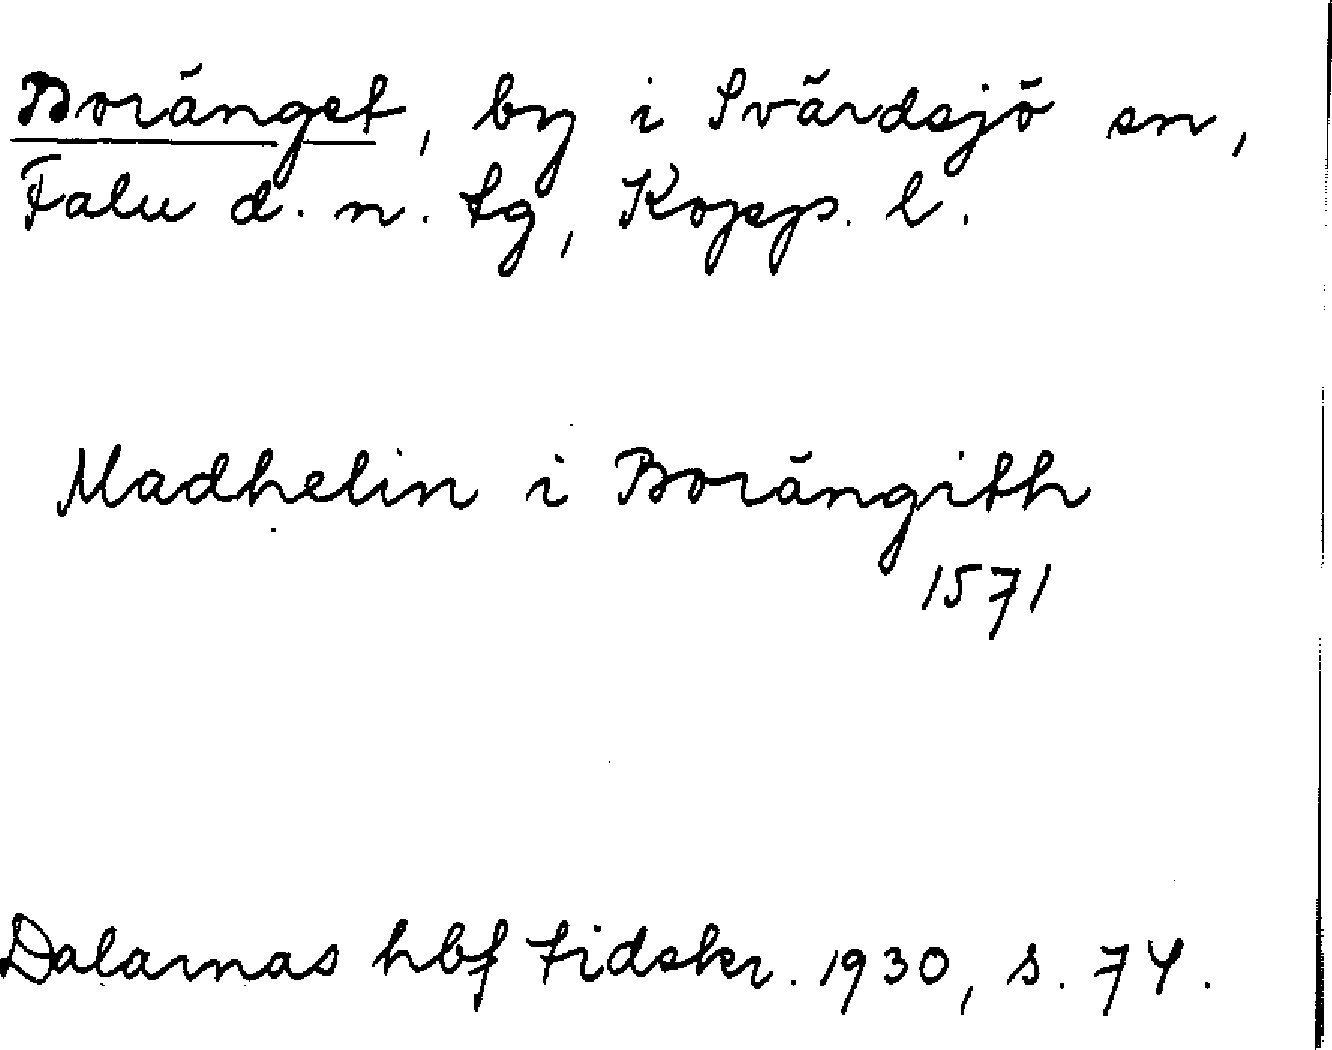 Boränget, by i Svärdsjö sn,
Falu d. n. tg, Kopp. l.
Madhelin i Borängith
1571
Dalarnas hbf tidskr. 1930, s. 74.